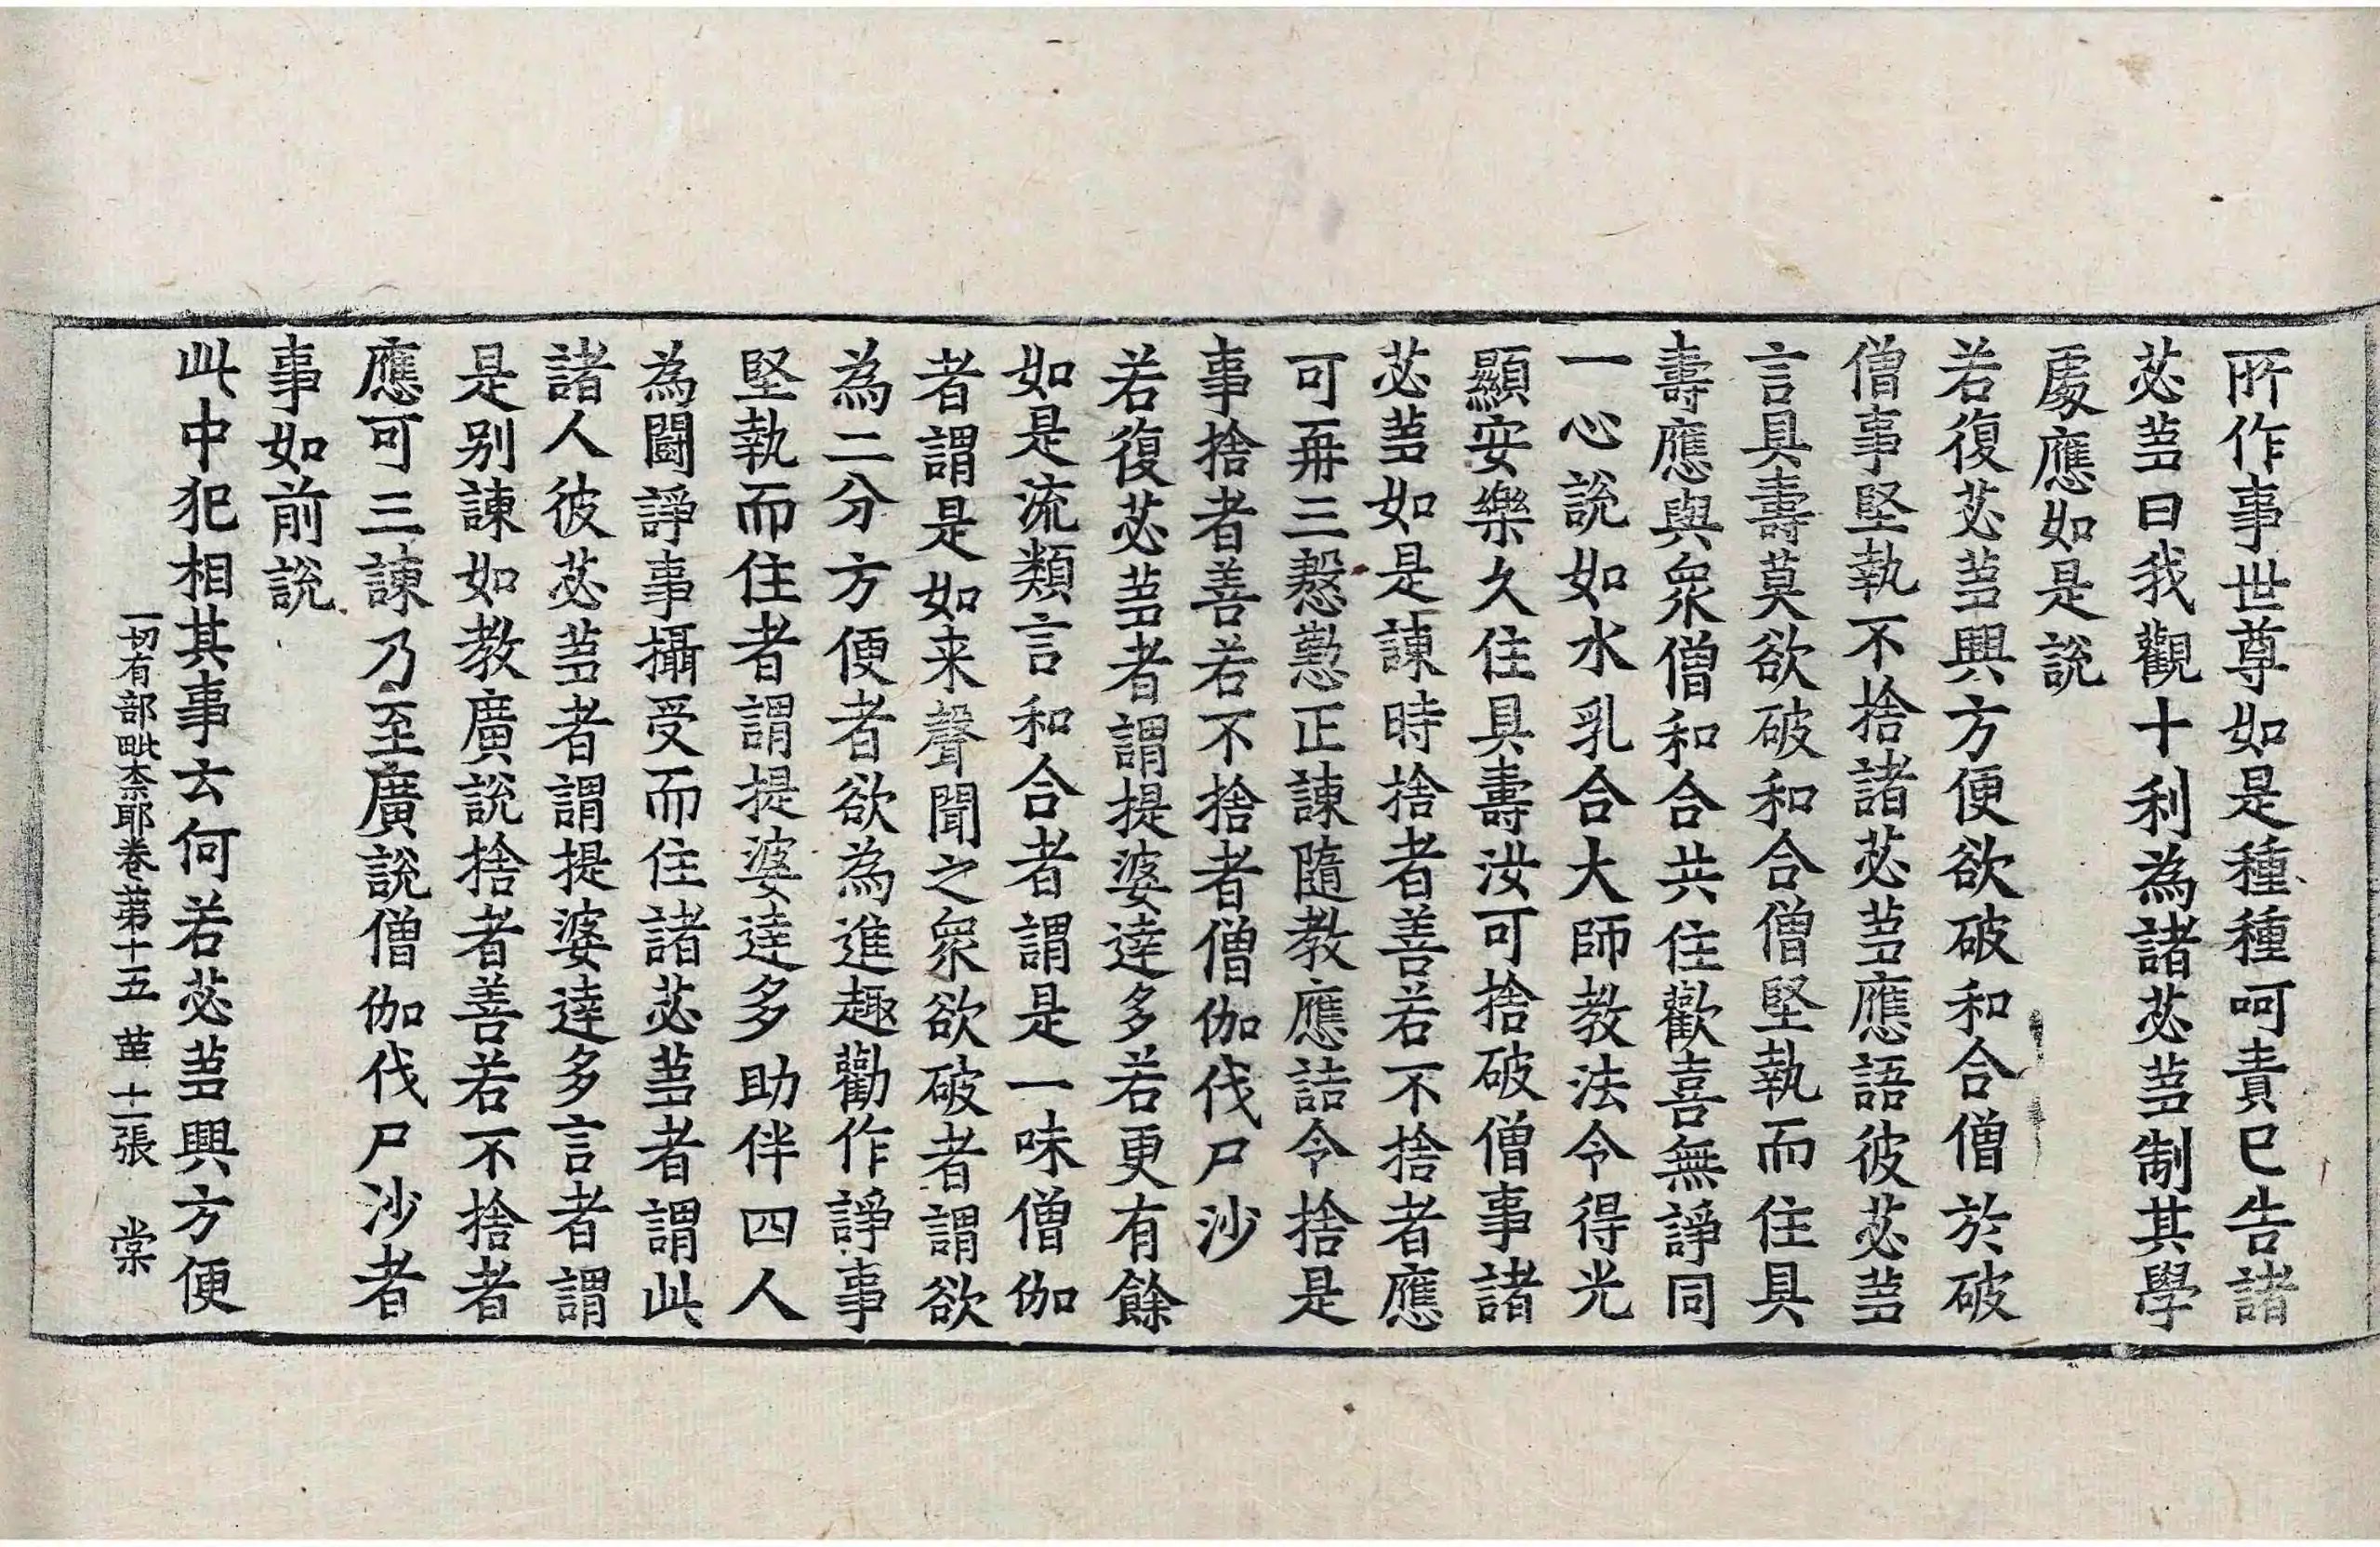 所作事世尊如是種種呵責已告諸
苾蒭曰我觀十利為諸苾蒭制其學
處應如是說
若復苾蒭興方便欲破和合僧於破
僧事堅執不捨諸苾蒭應語彼苾蒭
言具壽莫欲破和合僧堅執而住具
壽應與衆僧和合共住歡喜無諍同
一心說如水乳合大師教法令得光
顯安樂久住具壽汝可捨破僧事諸
苾蒭如是諫時捨者善若不捨者應
可再三慇懃正諫隨教應詰令捨是
事捨者善若不捨者僧伽伐尸沙
若復苾蒭者謂提婆達多若更有餘
如是流類言和合者謂是一味僧伽
者謂是如来聲聞之衆欲破者謂欲
為二分方便者欲為進趣勸作諍事
堅執而住者謂提婆達多助伴四人
為鬪諍事攝受而住諸苾蒭者謂此
諸人彼苾蒭者謂提婆達多言者謂
是别諫如教廣說捨者善若不捨者
應可三諫乃至廣說僧伽伐尸沙者
事如前說
此中犯相其事云何若苾蒭興方便
一切有部毗柰耶卷苐十五 苐十二張 棠